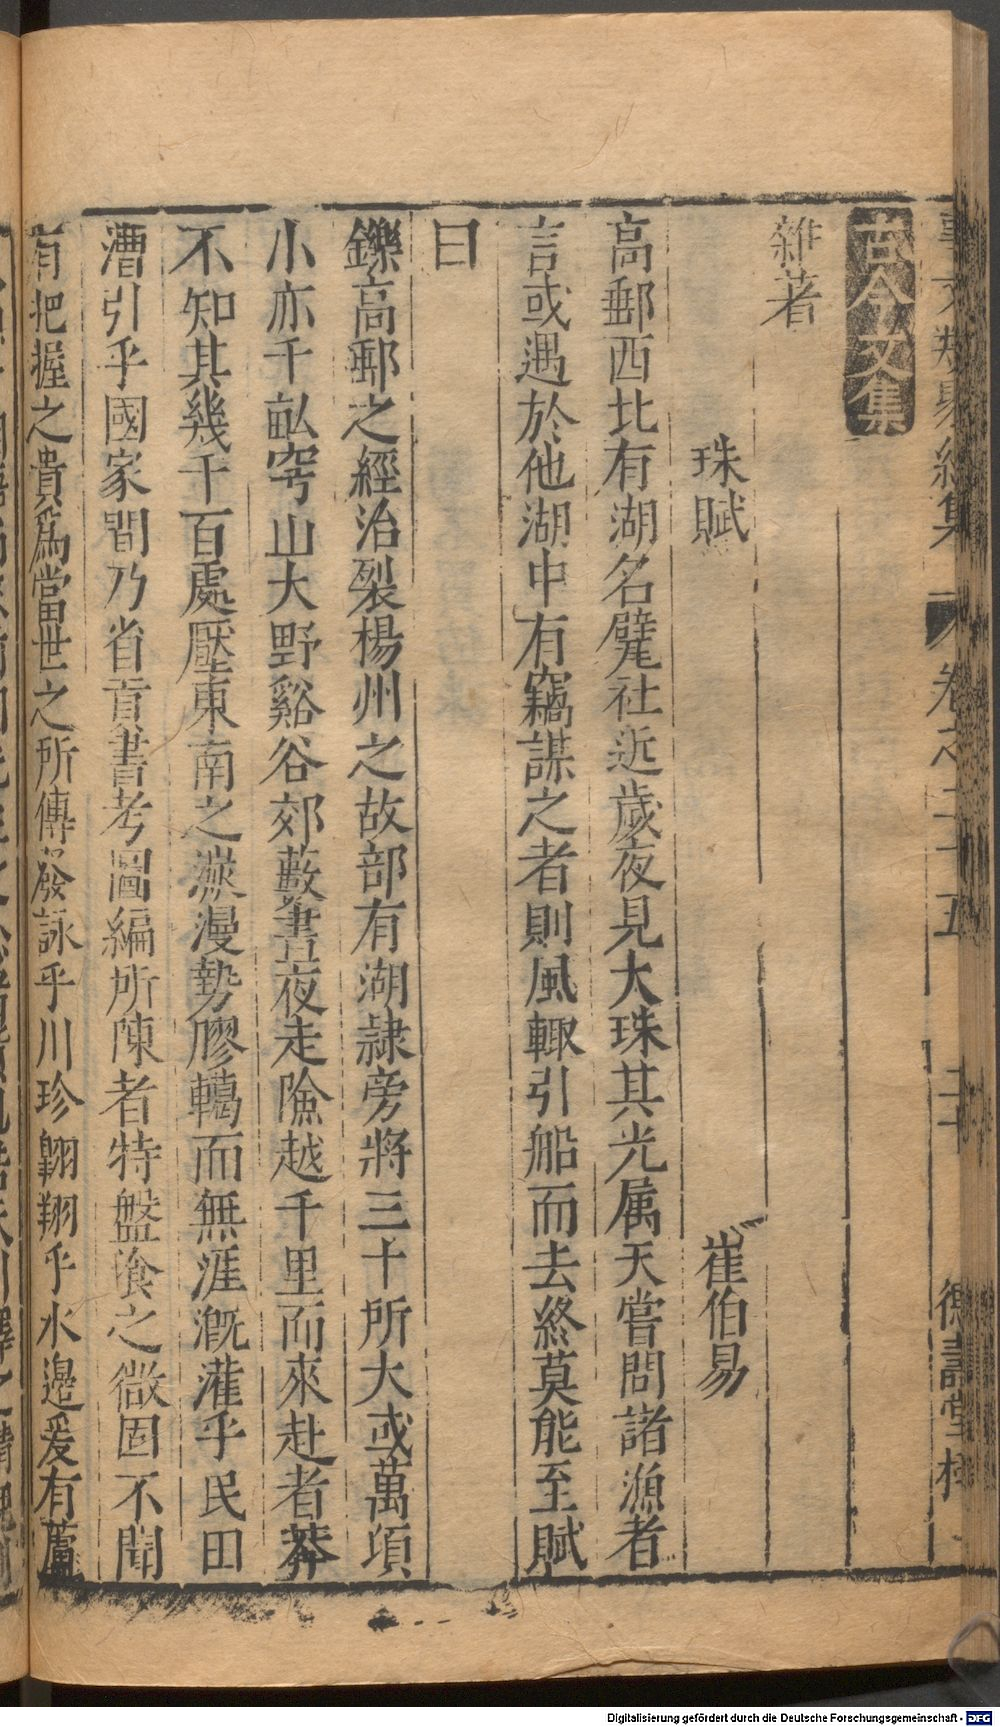 事文類聚續集 卷之二十五 德壽堂梓
古今文集
雜著
珠賦 崔伯易
高郵西北有湖名甓社近歲夜見大珠其光属天嘗問諸漁者
言或遇於他湖中有竊謀之者則風輙引船而去終莫能至賦
曰
鑠高郵之經治裂楊州之故部有湖隷旁將三十所大或萬項
小亦千畝穹山大野谿谷郊藪晝夜走險越千里而來赴者莽
不知其幾千百處壓東南之瀁漫勢膠轕而無涯溉灌乎民田
漕引乎國家間乃省首書考圖編所陳者特盤飡之微固不聞
有把握之貴爲當世之所傳發詠乎川珍翱翔乎水邉爰有蘆
Digitalisierung gefördert durch die Deutsche Forschungsgemeinschaft - DFG